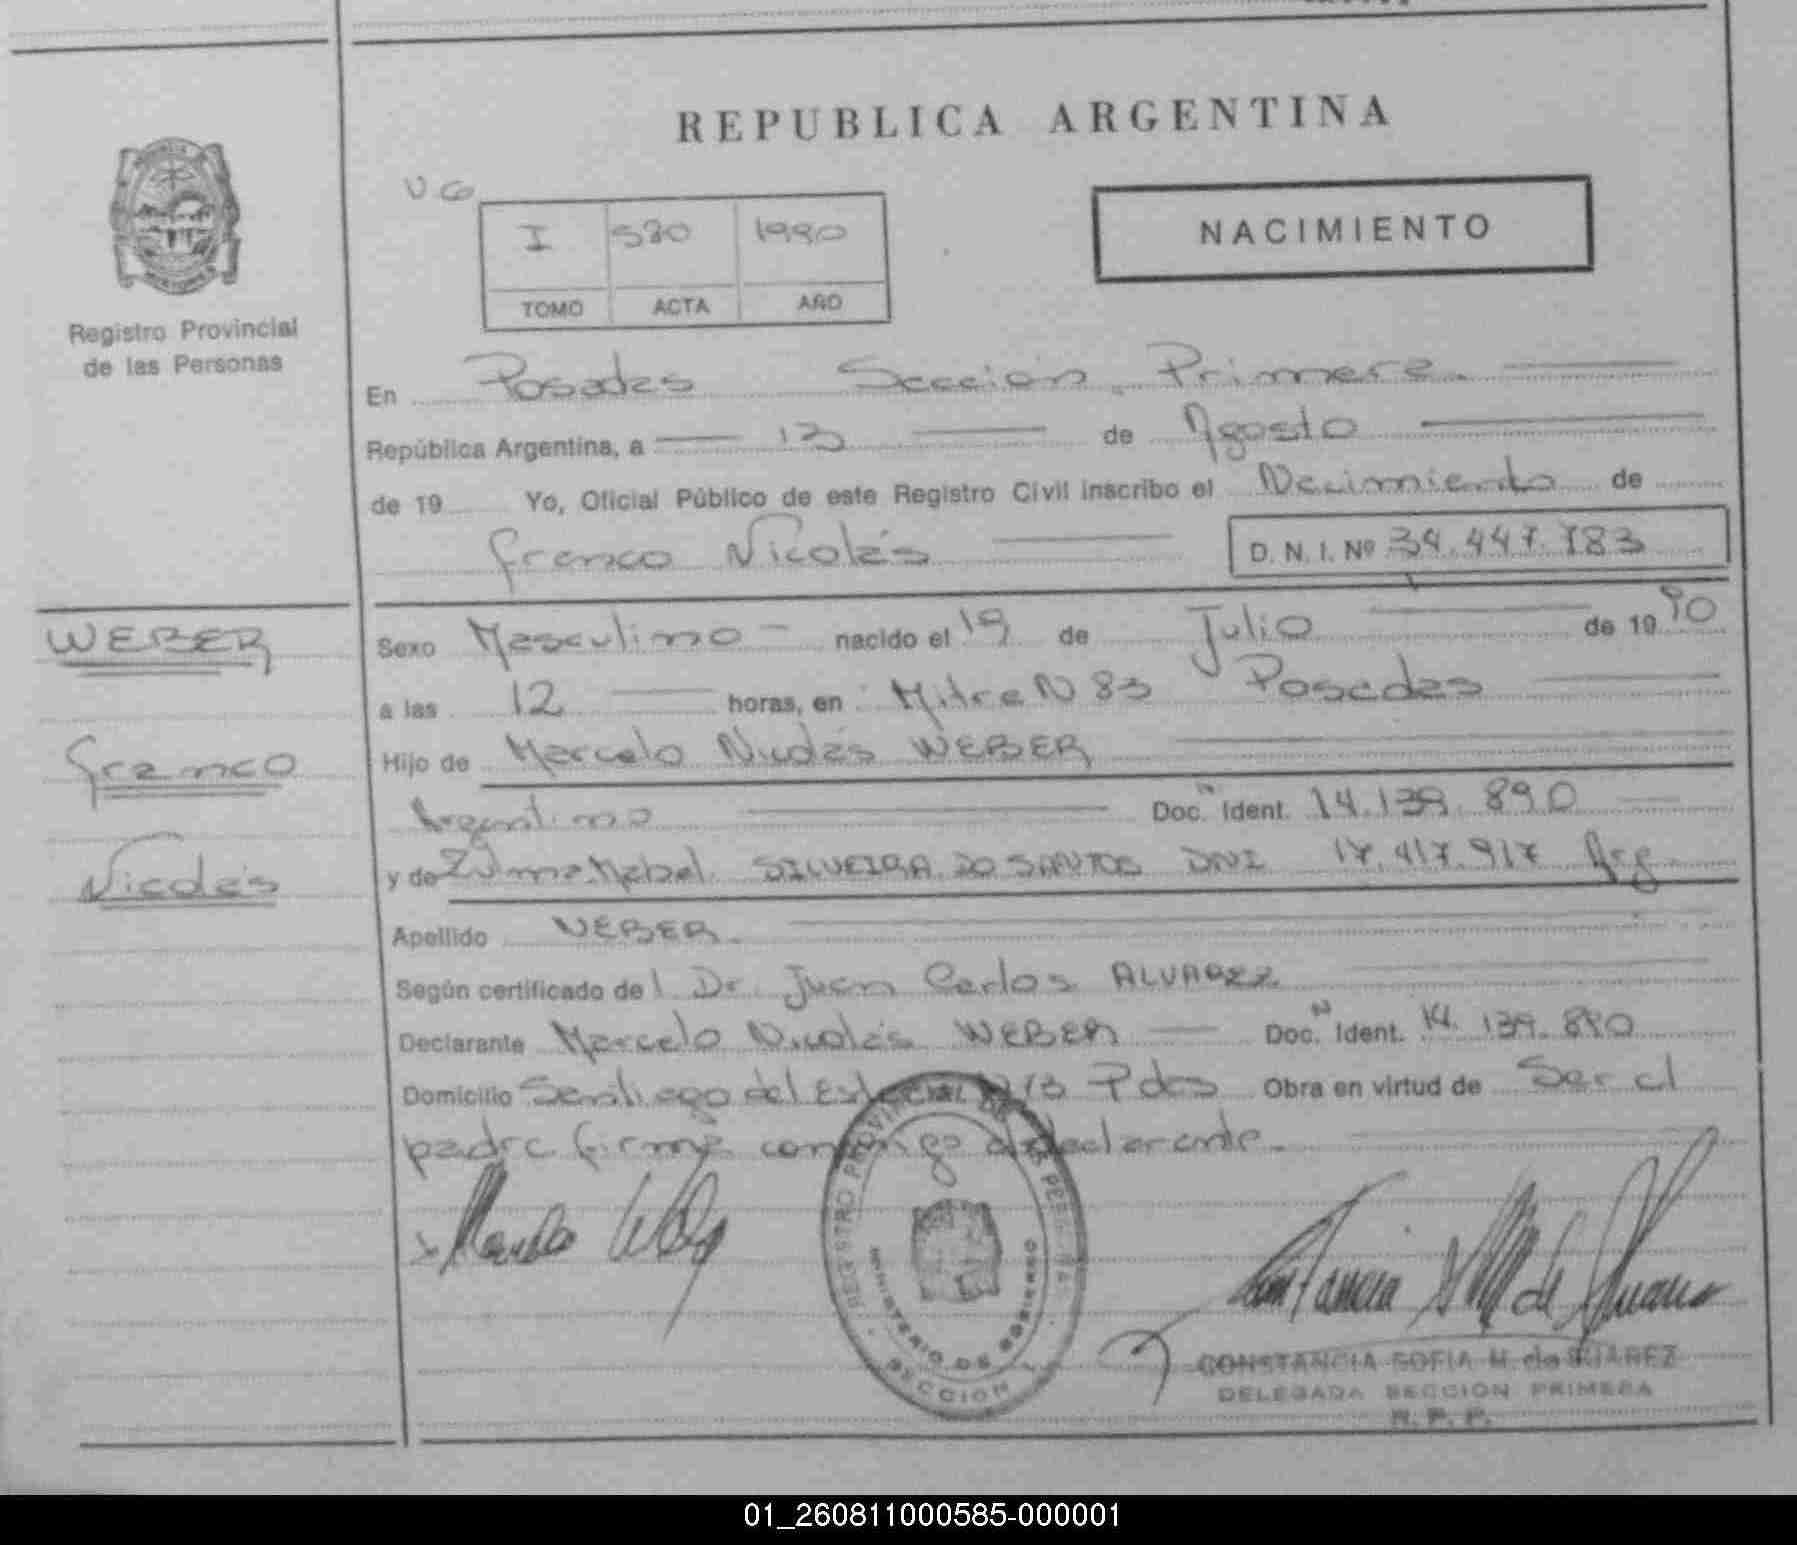 REPUBLICA ARGENTINA
I 580 1990
TOMO ACTA AÑO
NACIMIENTO
Registro Provincial
de las Personas
En Posadas Sección Primera.
República Argentina, a 13 de Agosto
de 19 Yo, Oficial Público de este Registro Civil inscribo el Nacimiento de
Franco Nicolás D. N. I. Nº 34.447.783
WEBER
Franco
Nicolás
Sexo Masculino nacido el 19 de Julio de 19 90
a las 12 horas, en Mitre N 83 Posadas
Hijo de Marcelo Nicolás WEBER
Argentino Doc. Ident. 14.139.890
y de Zulma Mabel SILVEIRA DO SANTOS DNI 17.417.917 Arg
Apellido WEBER.
Según certificado del Dr. Juan Carlos ALVAREZ
Declarante Marcelo Nicolás WEBER Doc. Ident. 14.139.890
Domicilio Santiago del Estero Pdas Obra en virtud de Ser el
padre firma conmigo el declarante.
REGISTRO PROVINCIAL DE LAS PERSONAS
MINISTERIO DE GOBIERNO
SECCION 1
CONSTANCIA SOFIA M. de SUAREZ
DELEGADA SECCION PRIMERA
R. P. P.
01_260811000585-000001